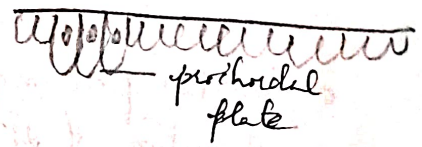 prochordal
plate